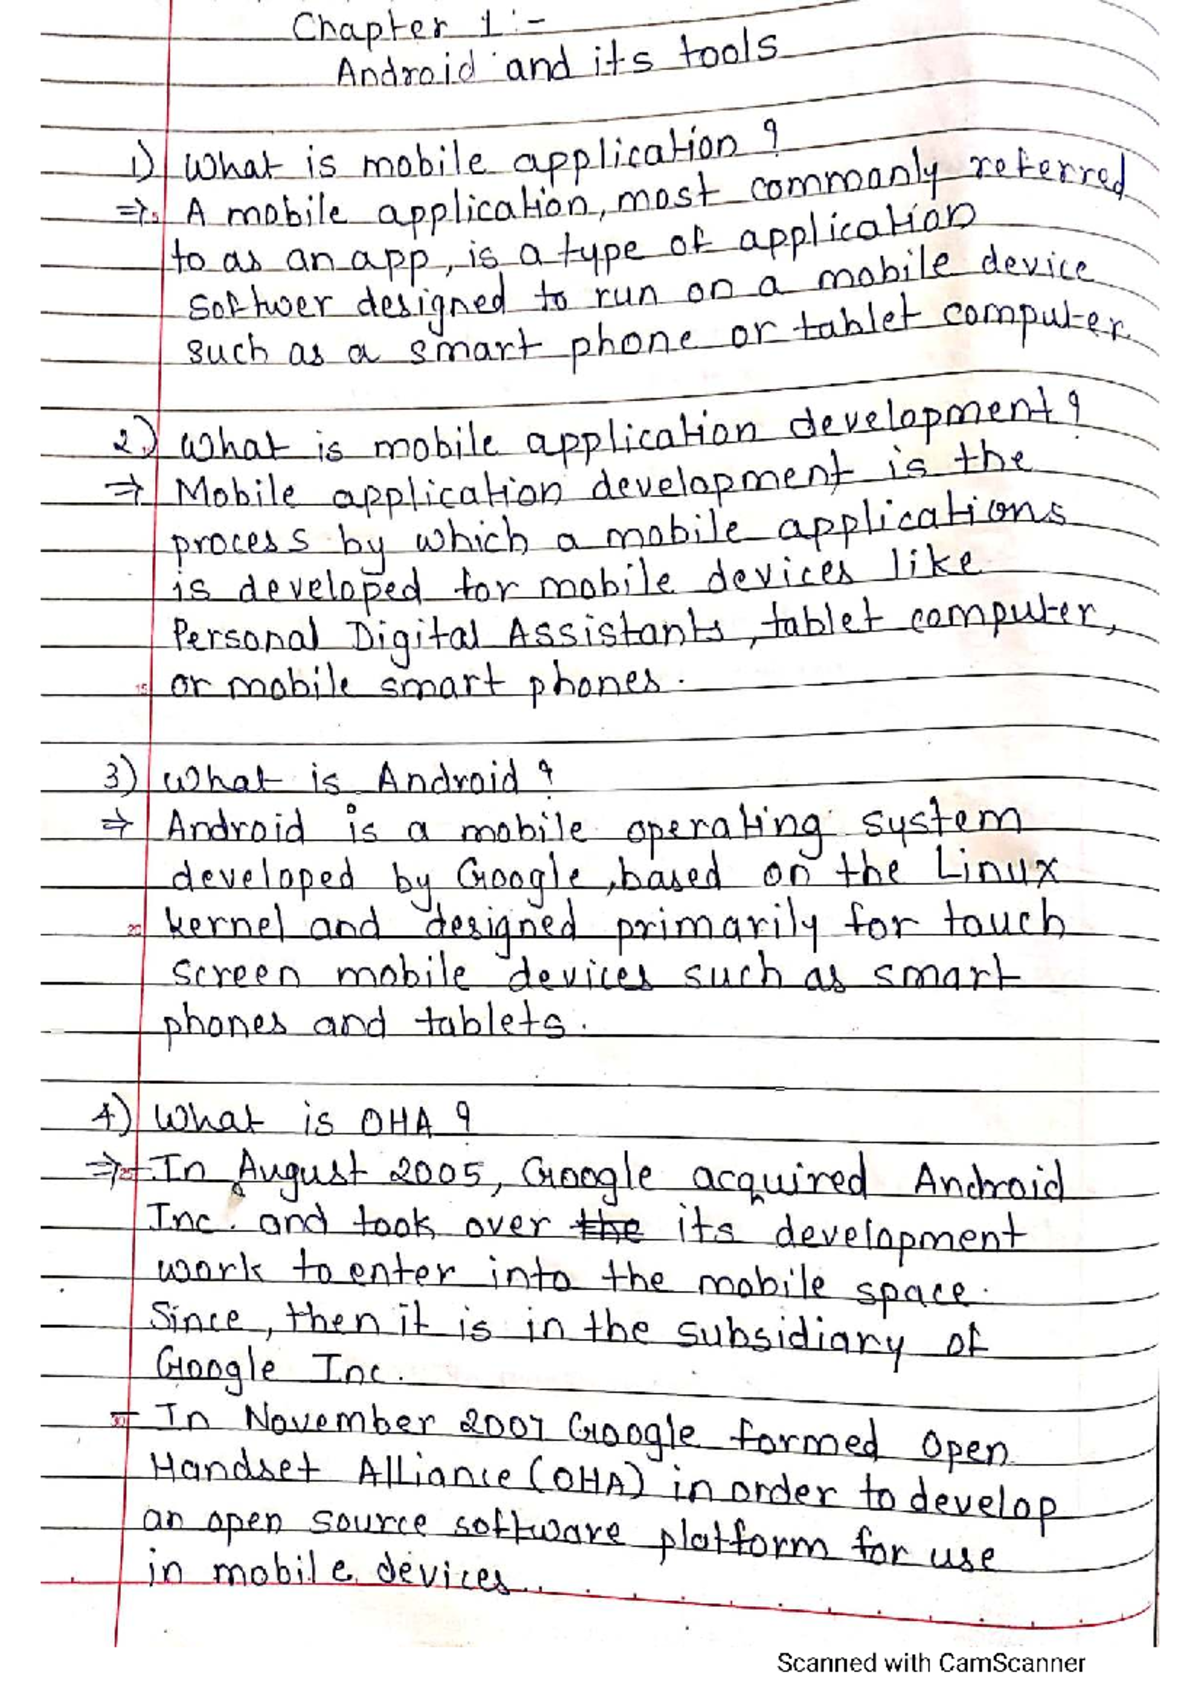 Chapter 1 :-
Android and its tools
1) What is mobile application ?
⇒ A mobile application, most commonly referred
to as an app, is a type of application
Softwer designed to run on a mobile device
such as a smart phone or tablet computer.
2) What is mobile application development ?
⇒ Mobile application development is the
process by which a mobile applications
is developed for mobile devices like
Personal Digital Assistants, tablet computer,
15 or mobile smart phones.
3) What is Android ?
⇒ Android is a mobile operating system
developed by Google, based on the Linux
20 kernel and designed primarily for touch
screen mobile devices such as smart
phones and tablets.
4) What is OHA ?
⇒ 25 In August 2005, Google acquired Android
Inc. and took over the its development
work to enter into the mobile space.
Since, then it is in the subsidiary of
Google Inc.
30 - In November 2007 Google formed Open
Handset Alliance (OHA) in order to develop
an open source software platform for use
in mobile devices.
Scanned with CamScanner